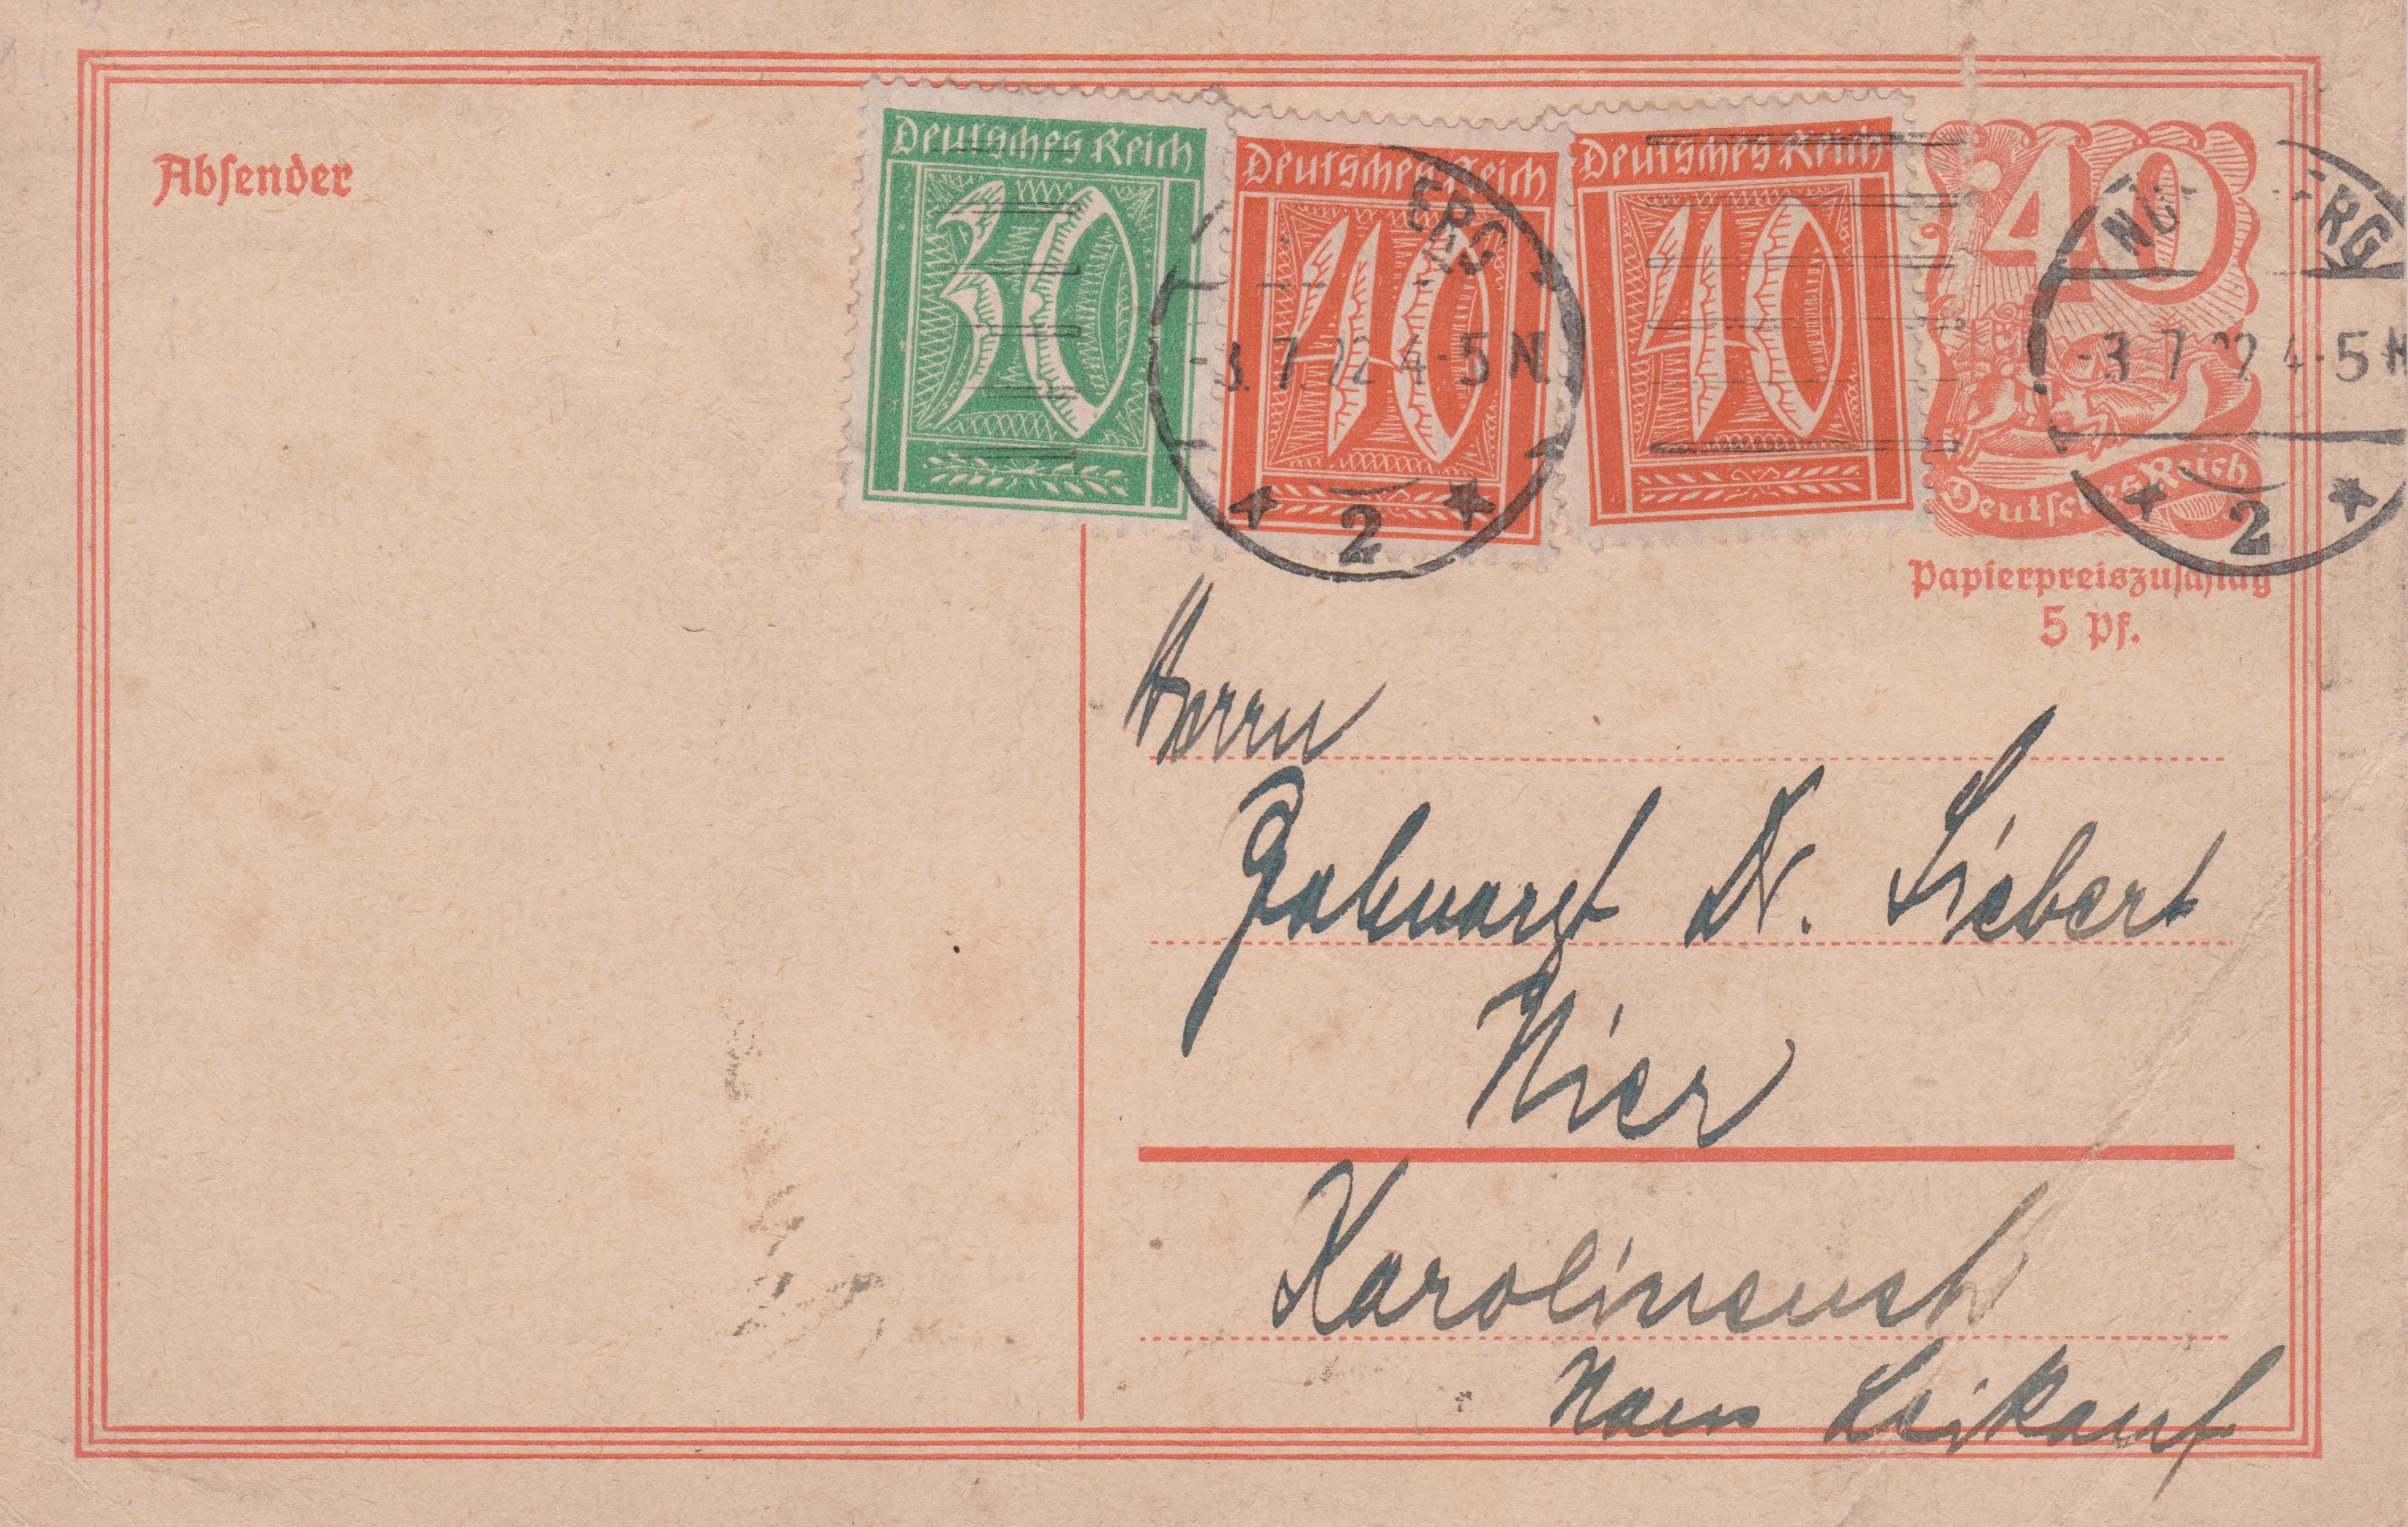 Absender
Deutsches Reich
30
Deutsches Reich
40
Deutsches Reich
40
40
Deutsches Reich
ERG
-3.7.22 4-5 N.
2
NÜ ERG
-3.7.22 4-5 N
2
Papierpreiszuschlag
5 Pf.
Herrn
Zahnarzt Dr. Siebert
Hier
Haus Leikauf